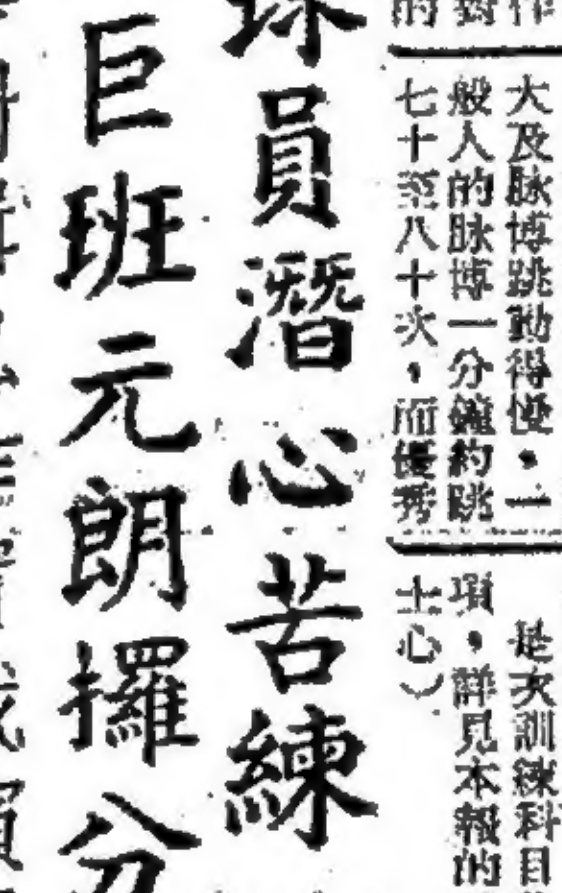 大及脉博跳動得慢，一
般人的脉博一分鐘約跳
七十至八十次，而優秀
是次訓練科目
項，詳見本報的
士心）
球員潛心苦練
巨班元朗攞分